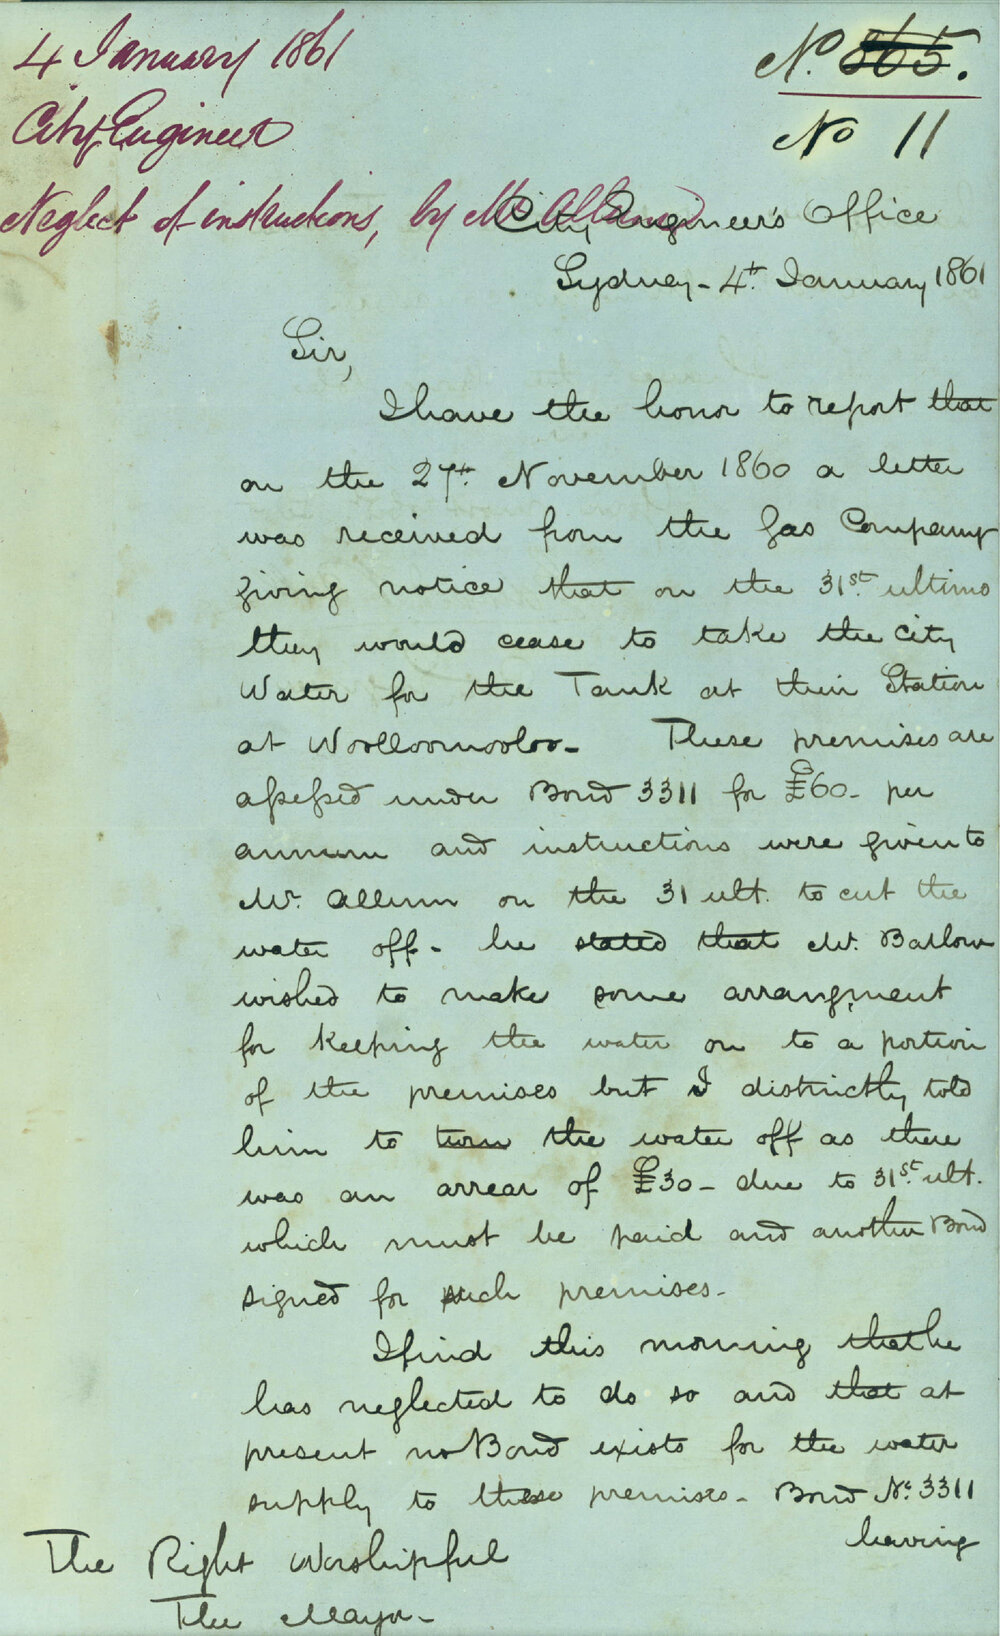 4 January 1861
No. 865.
City Engineer
No 11
Neglect of instructions, by Mr Allum
City Engineer's Office
Sydney - 4th. January 1861
Sir,
I have the honor to report that
on the 27th. November 1860 a letter
was received from the Gas Company
giving notice that on the 31st. ultimo
they would cease to take the City
Water for the Tank at their Station
at Woolloomooloo- These premises are
assessed under Bond 3311 for £60- per
annum and instructions were given to
Mr. Allum on the 31 ult. to cut the
water off - he stated that Mr. Barlow
wished to make some arrangment
for keeping the water on to a portion
of the premises but I distinctly told
him to turn the water off as there
was an arrear of £30- due to 31st. ult.
which must be paid and another Bond
signed for such premises-
I find this morning that he
has neglected to do so and that at
present no Bond exists for the water
supply to these premises- Bond No. 3311
having
The Right Worshipful
The Mayor-